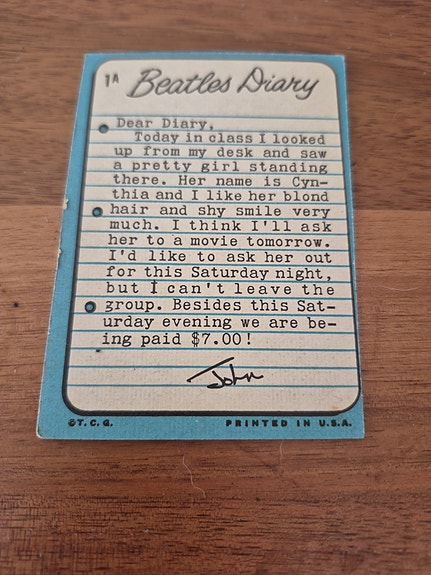 1A Beatles Diary
Dear Diary,
Today in class I looked
up from my desk and saw
a pretty girl standing
there. Her name is Cyn-
thia and I like her blond
hair and shy smile very
much. I think I'll ask
her to a movie tomorrow.
I'd like to ask her out
for this Saturday night,
but I can't leave the
group. Besides this Sat-
urday evening we are be-
ing paid $7.00!
John
©T.C.G. PRINTED IN U.S.A.